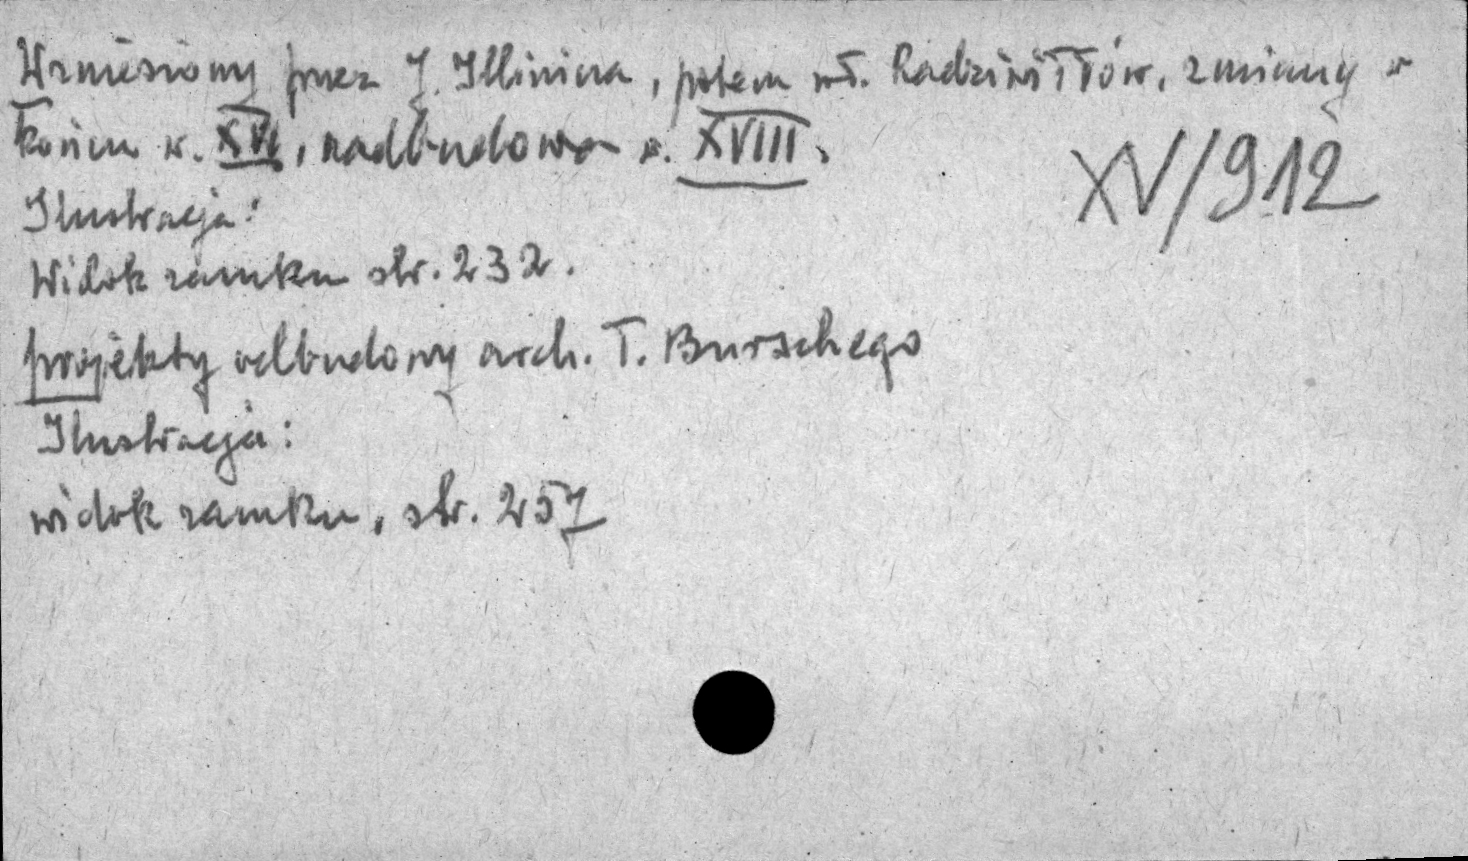 Wzniesiony przez J. Illinicza, potem wł. Radziwiłłów, zmiany w
końcu w. XVI, nadbudowa w. XVIII.
XV/912
Ilustracja:
Widok zamku str. 232.
projekty odbudowy arch. T. Burschego
Ilustracja:
widok zamku, str. 257